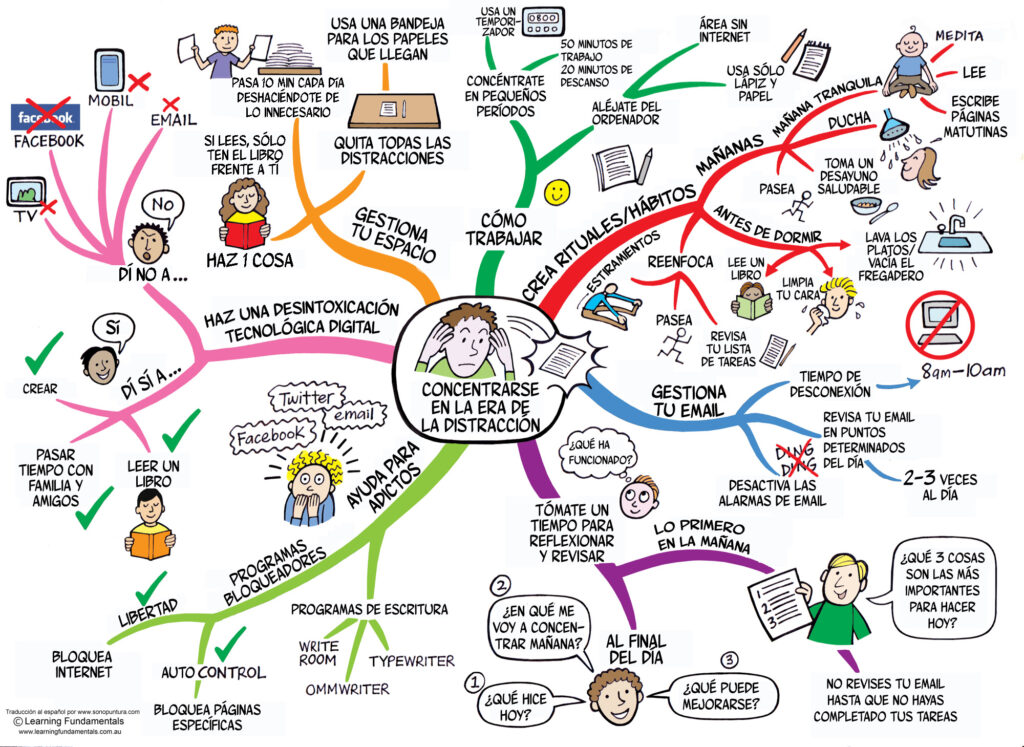 CONCENTRARSE
EN LA ERA DE
LA DISTRACCIÓN
CÓMO
TRABAJAR
CONCÉNTRATE
EN PEQUEÑOS
PERÍODOS
USA UN
TEMPORI-
ZADOR
0800
50 MINUTOS DE
TRABAJO
20 MINUTOS DE
DESCANSO
ALÉJATE DEL
ORDENADOR
ÁREA SIN
INTERNET
USA SÓLO
LÁPIZ Y
PAPEL
CREA RITUALES/HÁBITOS
MAÑANAS
MAÑANA TRANQUILA
MEDITA
LEE
ESCRIBE
PÁGINAS
MATUTINAS
DUCHA
TOMA UN
DESAYUNO
SALUDABLE
PASEA
ANTES DE DORMIR
LAVA LOS
PLATOS/
VACÍA EL
FREGADERO
LEE UN
LIBRO
LIMPIA
TU CARA
REENFOCA
ESTIRAMIENTOS
PASEA
REVISA
TU LISTA
DE TAREAS
GESTIONA
TU EMAIL
TIEMPO DE
DESCONEXIÓN
8am-10am
REVISA TU EMAIL
EN PUNTOS
DETERMINADOS
DEL DÍA
2-3 VECES
AL DÍA
DING
DING
DESACTIVA LAS
ALARMAS DE EMAIL
TÓMATE UN
TIEMPO PARA
REFLEXIONAR
Y REVISAR
¿QUÉ HA
FUNCIONADO?
LO PRIMERO
EN LA MAÑANA
1
2
3
¿QUÉ 3 COSAS
SON LAS MÁS
IMPORTANTES
PARA HACER
HOY?
NO REVISES TU EMAIL
HASTA QUE NO HAYAS
COMPLETADO TUS TAREAS
AL FINAL
DEL DÍA
1
¿QUÉ HICE
HOY?
2
¿EN QUÉ ME
VOY A CONCEN-
TRAR MAÑANA?
3
¿QUÉ PUEDE
MEJORARSE?
AYUDA PARA
ADICTOS
Twitter
email
Facebook
PROGRAMAS DE ESCRITURA
WRITE
ROOM
OMMWRITER
TYPEWRITER
PROGRAMAS
BLOQUEADORES
LIBERTAD
BLOQUEA
INTERNET
AUTO CONTROL
BLOQUEA PÁGINAS
ESPECÍFICAS
HAZ UNA DESINTOXICACIÓN
TECNOLÓGICA DIGITAL
DÍ SÍ A ...
SÍ
CREAR
PASAR
TIEMPO CON
FAMILIA Y
AMIGOS
LEER UN
LIBRO
DÍ NO A ...
NO
TV
facebook
FACEBOOK
MOBIL
EMAIL
GESTIONA
TU ESPACIO
HAZ 1 COSA
SI LEES, SÓLO
TEN EL LIBRO
FRENTE A TÍ
PASA 10 MIN CADA DÍA
DESHACIÉNDOTE DE
LO INNECESARIO
USA UNA BANDEJA
PARA LOS PAPELES
QUE LLEGAN
QUITA TODAS LAS
DISTRACCIONES
Traducción al español por www.sonopuntura.com
© Learning Fundamentals
www.learningfundamentals.com.au